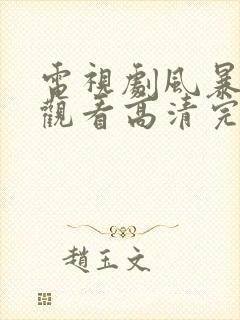 電視劇風暴
觀看高清完
趙玉文